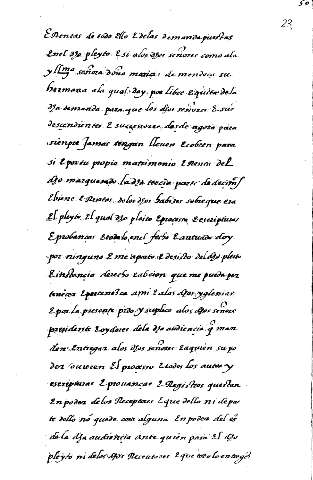 23
E Rentas de todo ello E de las demandas puestas
En el dho pleyto E si a los dhos señores como a la
y llma señora doña maria de mendoça su
hermana a la qual doy por libre E quita de la
dha demanda para que los dhos señores E sus
descendientes E sucesores desde agora para
siempre Jamas tengan lleven E cobren para
si E por su propio matrimonio E Rentas del
dho marquesado la dha tercia parte de decimas
E bienes E Rentas de los dhos sobre que era
El pleyto El qual dho pleito E proceso E escripturas
E probanças E todo lo en el fecho E autuado doy
por ninguno E me aparto E desisto del dho pleito
E instancia derecho E abcion que me pueda per
tenecer E pertenezca a mi E a las dhas yglesias
E por la presente pido y suplico a los dhos señores
presidente E oydores de la dha audiencia q man
den Entregar a los dhos señores E a quien su po
der oviere El proceso E todos los autos y
escripturas E provanças E Registros questan
En poder de los Receptores E que dello ni de pa
te dello no quede cosa alguna En poder del es
de la dha audiencia ante quien pasa El dho
pleyto ni de los dhos Receptores E que todo lo entreguē